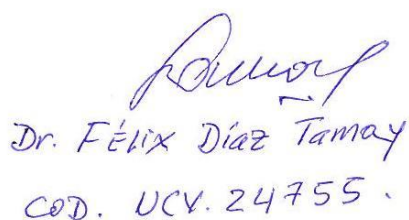 Dr. FÉLIX Díaz Tamay
COD. UCV. 24755.